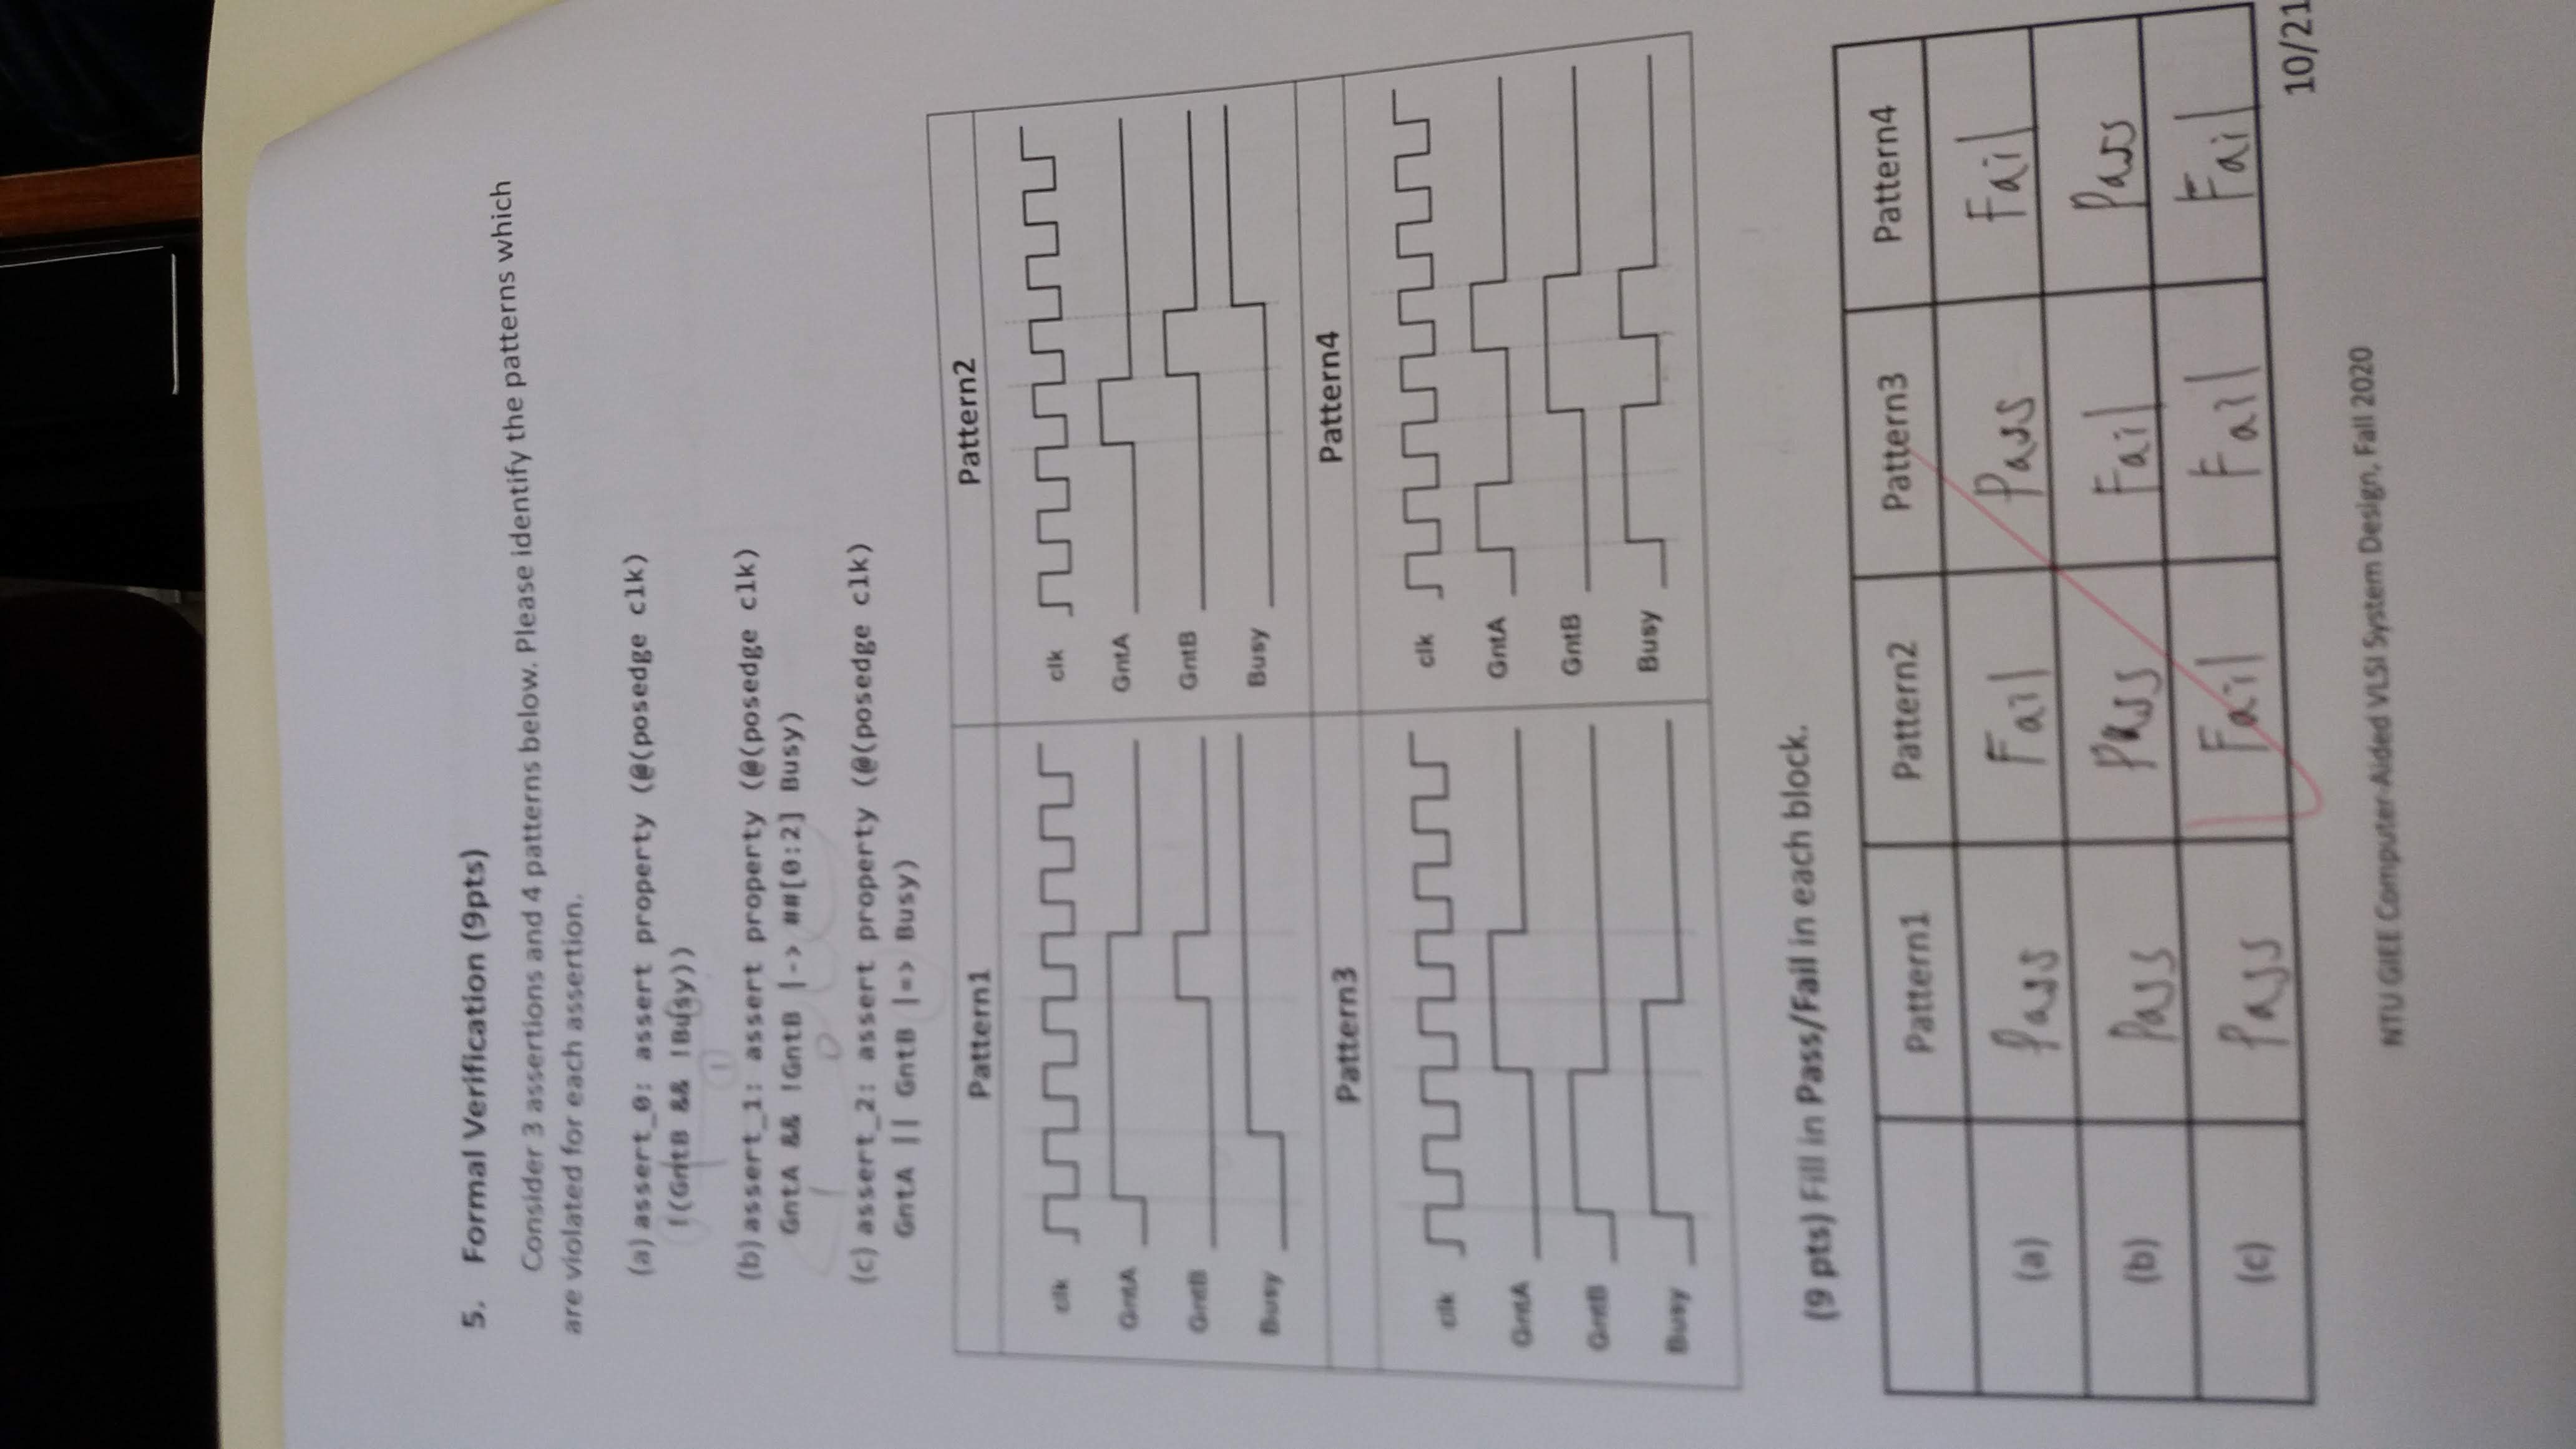 5. Formal Verification (9pts)
Consider 3 assertions and 4 patterns below. Please identify the patterns which
are violated for each assertion.
(a) assert_0: assert property (@(posedge clk)
!(GntB && !Busy))
1
1
(b) assert_1: assert property (@(posedge clk)
GntA && !GntB |-> ##[0:2] Busy)
1 0
(c) assert_2: assert property (@(posedge clk)
GntA || GntB |=> Busy)
Pattern1 Pattern2
clk clk
GntA GntA
GntB GntB
Busy Busy
Pattern3 Pattern4
clk clk
GntA GntA
GntB GntB
Busy Busy
(9 pts) Fill in Pass/Fail in each block.
Pattern1 Pattern2 Pattern3 Pattern4
(a) Pass Fail Pass Fail
(b) Pass Pass Fail Pass
(c) Pass Fail Fail Fail
10/21
NTU GIEE Computer-Aided VLSI System Design, Fall 2020